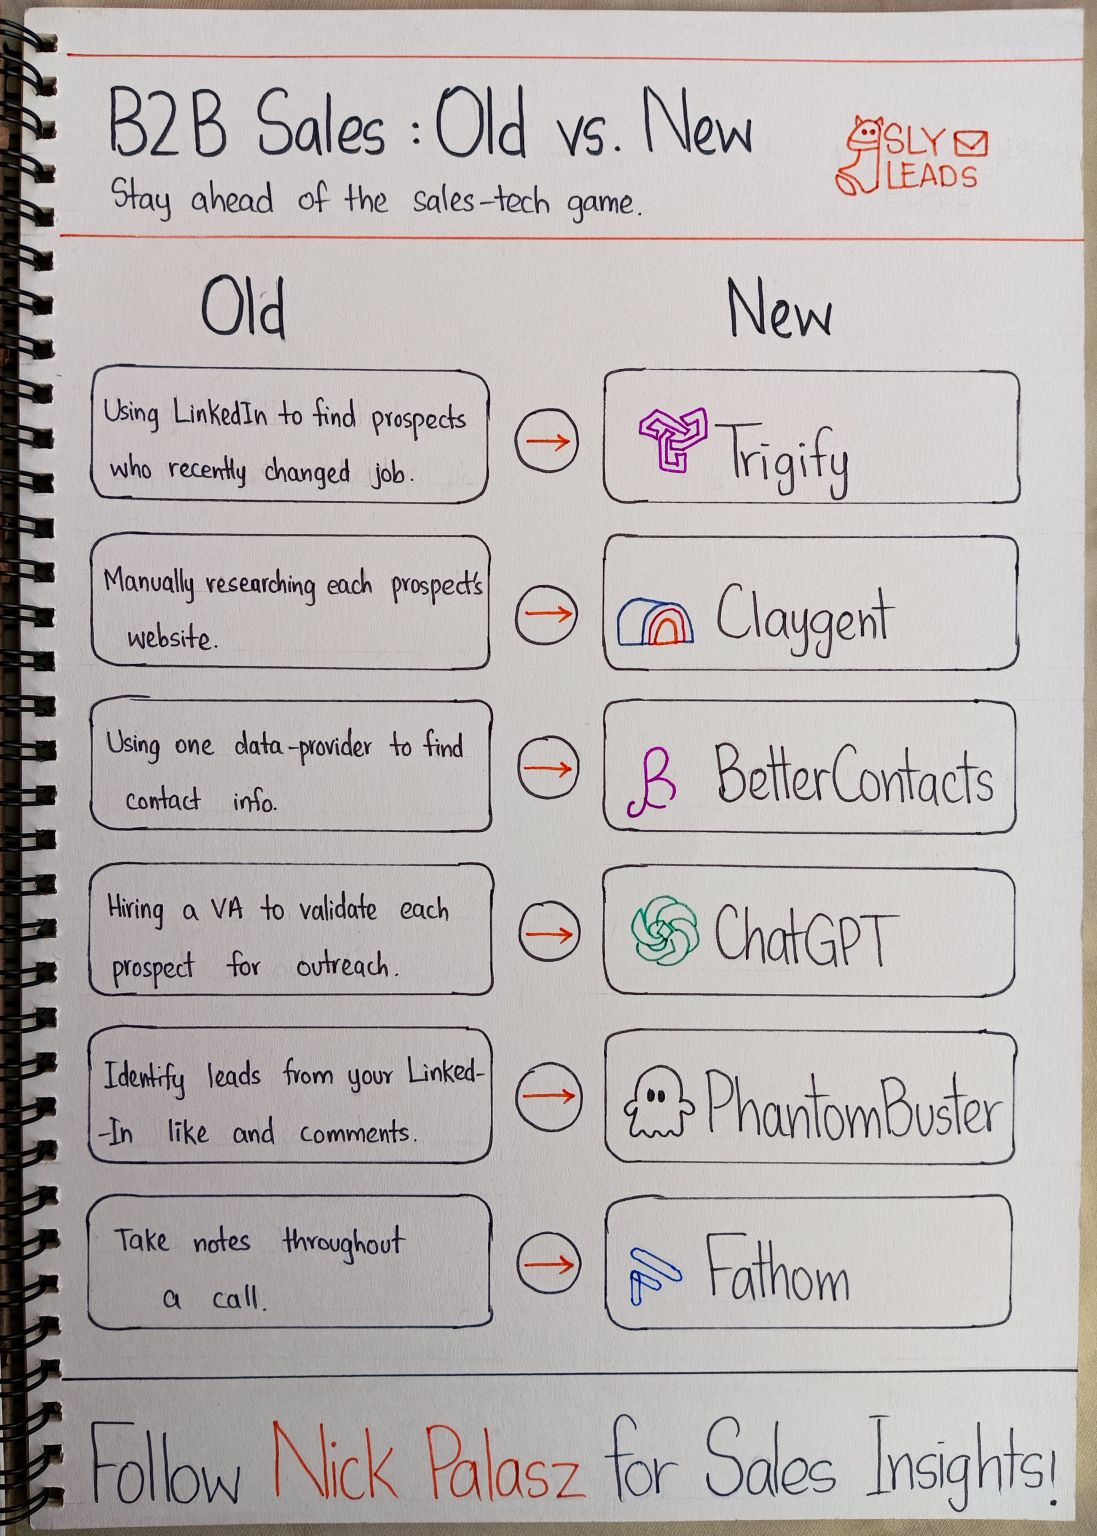 B2B Sales : Old vs. New
Stay ahead of the sales-tech game.
SLY
LEADS
Old
New
Using LinkedIn to find prospects
who recently changed job.
Trigify
Manually researching each prospect's
website.
Claygent
Using one data-provider to find
contact info.
BetterContacts
Hiring a VA to validate each
prospect for outreach.
ChatGPT
Identify leads from your Linked-
-In like and comments.
PhantomBuster
Take notes throughout
a call.
Fathom
Follow Nick Palasz for Sales Insights!